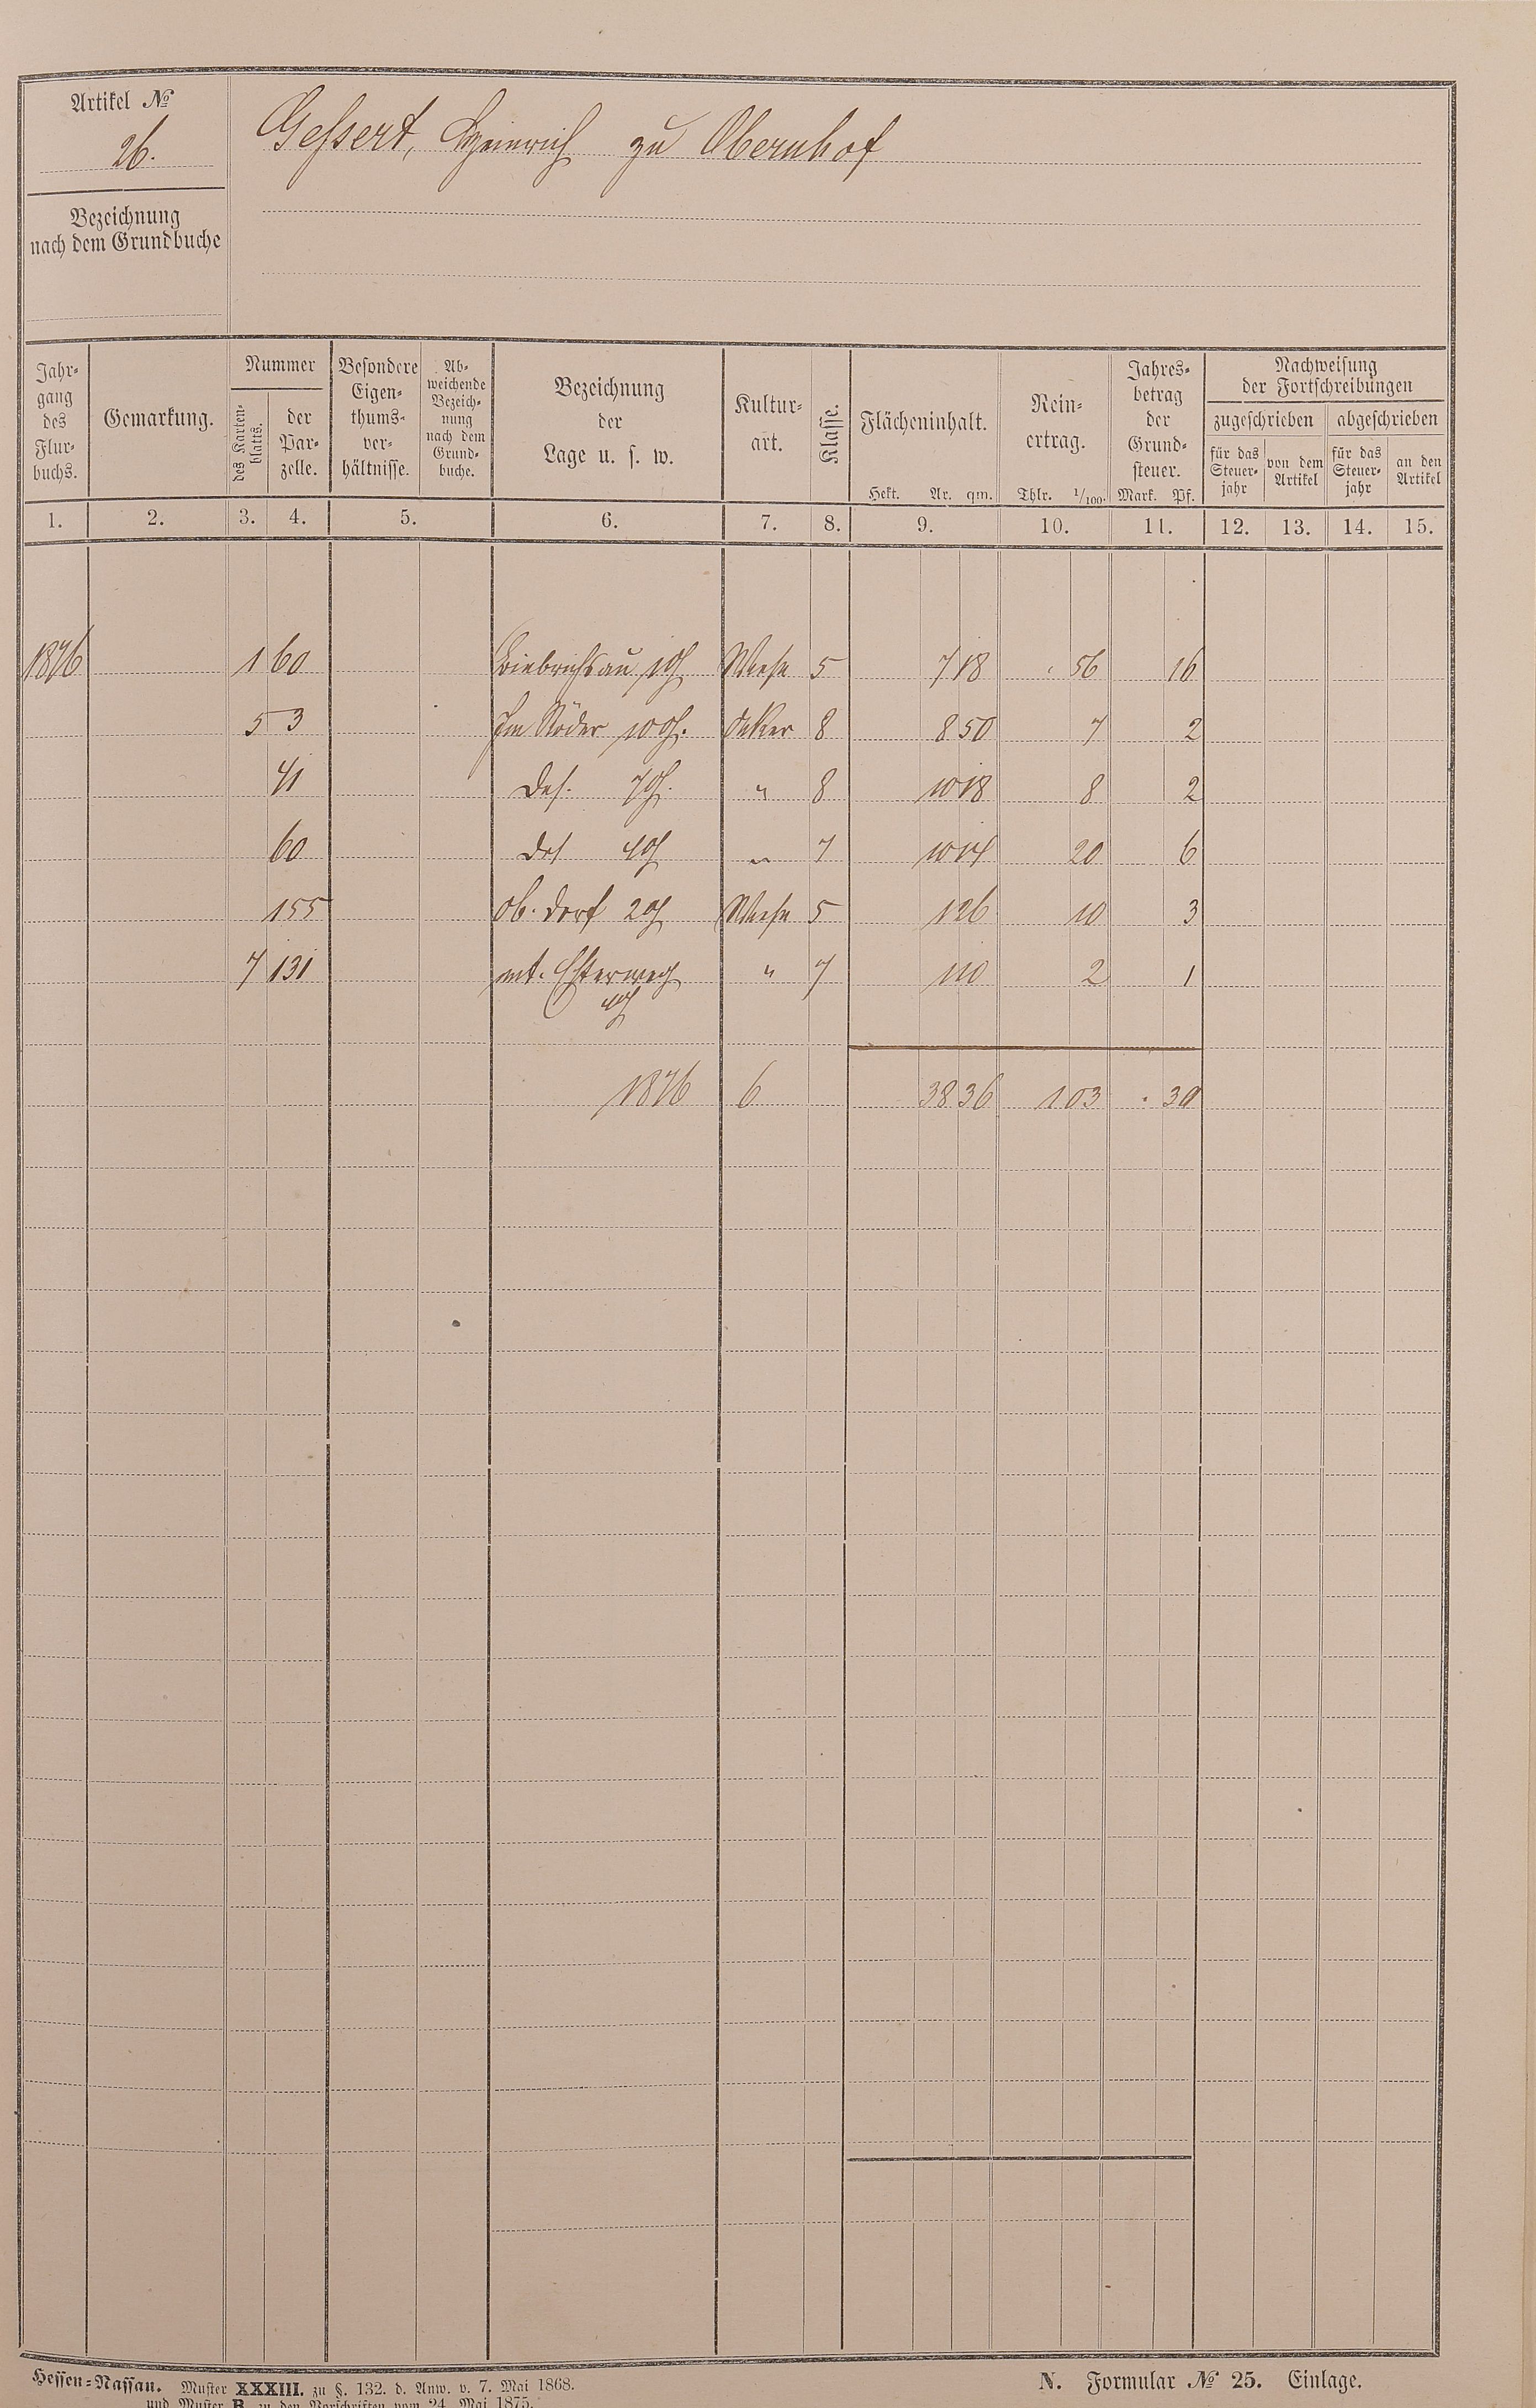 Artikel №
26.
Gessert, Heinrich zu Obernhof
Bezeichnung
nach dem Grundbuche
Jahr-
gang
des
Flur-
buchs.
Gemarkung.
Nummer
des Karten-
blatts.
der
Par-
zelle.
Besondere
Eigen-
thums-
ver-
hältnisse.
Ab-
weichende
Bezeich-
nung
nach dem
Grund-
buche.
Bezeichnung
der
Lage u. s. w.
Kultur-
art.
Klasse.
Flächeninhalt.
Hekt. Ar. qm.
Rein-
ertrag.
Thlr. 1/100.
Jahres-
betrag
der
Grund-
steuer.
Mark. Pf.
Nachweisung
der Fortschreibungen
zugeschrieben abgeschrieben
für das
Steuer-
jahr
von dem
Artikel
für das
Steuer-
jahr
an den
Artikel
1. 2. 3. 4. 5. 6. 7. 8. 9. 10. 11. 12. 13. 14. 15.
1876 1 60 Wiese 5 7 18 56 16
5 3 Im Röder 10 Acker 8 8 50 7 2
41 Das. 7 " 8 10 18 8 2
60 Das 4 " 7 10 14 20 6
155 ob. Dorf 2 Wiese 5 1 26 10 3
7 131 " 7 1 10 2 1
1876 6 38 36 1 03 . 30
Hessen-Nassau. Muster XXXIII. zu §. 132. d. Anw. v. 7. Mai 1868.
und Muster B. zu den Vorschriften vom 24. Mai 1875.
N. Formular № 25. Einlage.